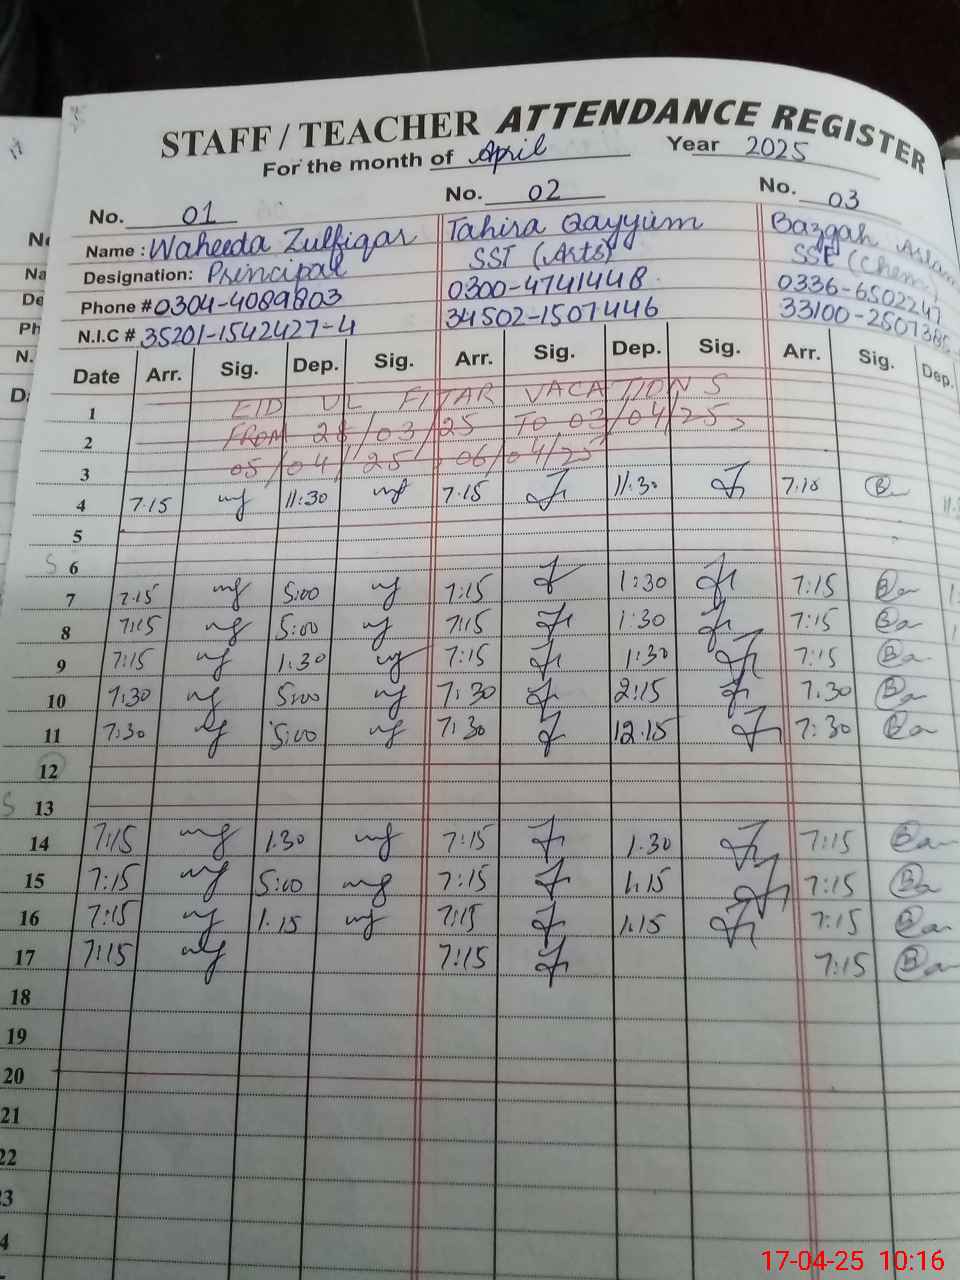 STAFF / TEACHER ATTENDANCE REGISTER
For the month of April Year 2025
No. 01 No. 02 No. 03
Name : Waheeda Zulfiqar Tahira Qayyum Bazgah
Designation: Principal SST (Arts) SSE (Chem
Phone # 0304-4089803 0300-4741448 0336-6502247
N.I.C # 35201-1542427-4 34502-1507446 33100-2507385
Date Arr. Sig. Dep. Sig. Arr. Sig. Dep. Sig. Arr. Sig. Dep.
1 EID UL FITAR VACATIONS
2 FROM 28/03/25 TO 03/04/25,
3 05/04/25, 06/04/25
4 7:15 11:30 7:15 11:30 7:10
5
S 6
7 7:15 5:00 7:15 1:30 7:15
8 7:15 5:00 7:15 1:30 7:15
9 7:15 1:30 7:15 1:30 7:15
10 7:30 5:00 7:30 2:15 7:30
11 7:30 5:00 7:30 12:15 7:30
12
S 13
14 7:15 1:30 7:15 1:30 7:15
15 7:15 5:00 7:15 1:15 7:15
16 7:15 1:15 7:15 1:15 7:15
17 7:15 7:15 7:15
18
19
20
21
22
3
4
17-04-25 10:16